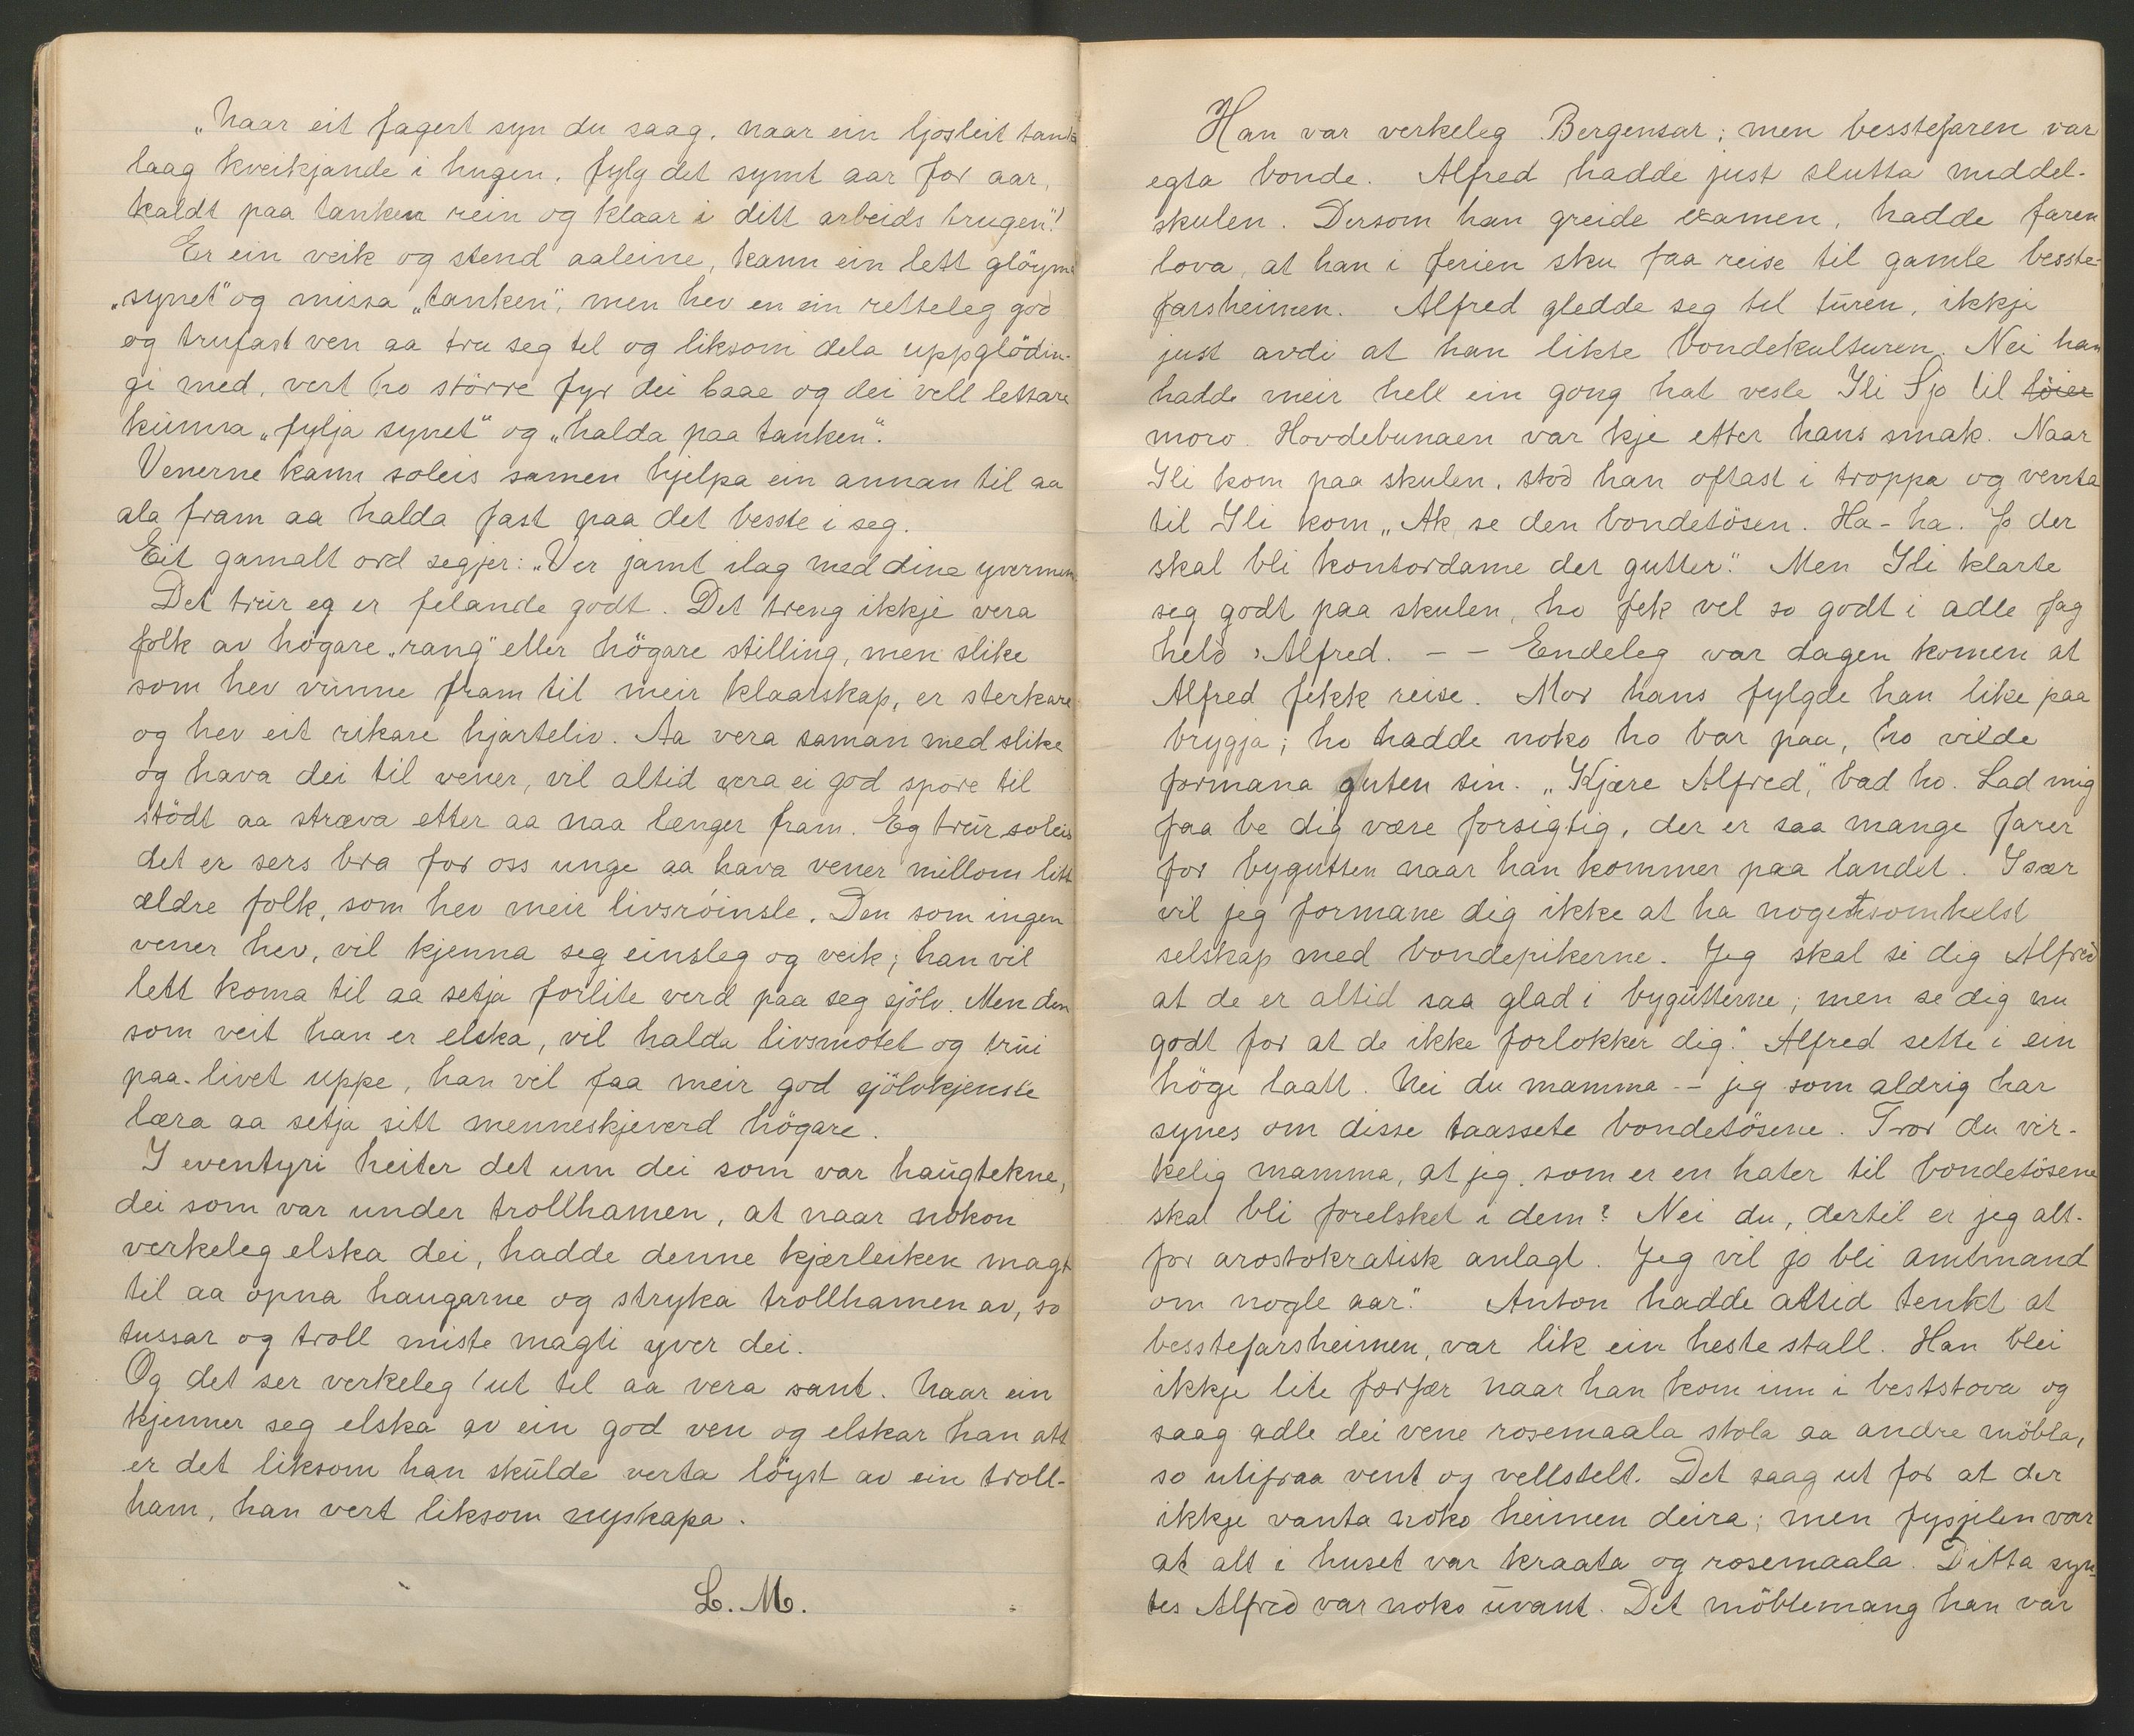 „Naar eit fagert syn du saag, naar ein ljosleit tanke
laag kveikjande i hugen, fylg det symt aar for aar,
haldt paa tanken rein og klaar i ditt arbeids trugen"!
Er ein veik og stend aaleine, kann ein lett glöyme
„synet" og missa „tanken", men hev en ein retteleg god
og trufast ven aa tru seg til og liksom dela uppglödin-
gi med, vert ho större fyr dei baae og dei vell lettare
kunna „fylja synet" og „halda paa tanken".
Venerne kann soleis samen hjelpa ein annan til aa
ala fram aa halda fast paa det besste i seg.
Eit gamalt ord segjer: „Ver jamt ilag med dine yvermen.
Det trur eg er felande godt. Det treng ikkje vera
folk av högare „rang" eller högare stilling, men slike
som hev vunne fram til meir klaarskap, er sterkare
og hev eit rikare hjarteliv. Aa vera saman med slike
og hava dei til vener, vil altid vera ei god spore til
stödt aa stræva etter aa naa længer fram. Eg trur soleis
det er sers bra for oss unge aa hava vener millom litt
ældre folk, som hev meir livsröinsle. Den som ingen
vener hev, vil kjenna seg einsleg og veik; han vil
lett koma til aa setja forlite verd paa seg sjölv. Men den
som veit han er elska, vil halda livsmotet og trui
paa livet uppe, han vil faa meir god sjölvkjensle
læra aa setja sitt menneskjeverd högare.
I eventyri heiter det um dei som var haugtekne,
dei som var under trollhamen, at naar nokon
verkeleg elska dei, hadde denne kjærleiken magt
til aa opna haugarne og stryka trollhamen av, so
tussar og troll miste magti yver dei.
Og det ser verkeleg ut til aa vera sant. Naar ein
kjenner seg elska av ein god ven og elskar han att
er det liksom han skulde verta löyst av ein troll-
ham, han vert liksom nyskapa.
L. M.
Han var verkeleg Bergensar; men besstefaren var
egta bonde. Alfred hadde just slutta middel-
skulen. Dersom han greide examen, hadde faren
lova, at han i ferien sku faa reise til gamle besste-
farsheimen. Alfred gledde seg til turen, ikkje
just avdi at han likte bondekulturen. Nei han
hadde meir hell ein gong hat vesle Ili Sjo til töier
moro. Hovdebunaen var kje etter hans smak. Naar
Ili kom paa skulen, stod han oftast i troppa og venta
til Ili kom „Ak se den bondetösen. Ha-ha. Jo der
skal bli kontordame der gutter." Men Ili klarte
seg godt paa skulen, ho fek vel so godt i adle fag
held Alfred. - - Endeleg var dagen komen at
Alfred fekk reise. Mor hans fylgde han like paa
brygja; ho hadde noko ho bar paa, ho vilde
formana guten sin. „Kjære Alfred," bad ho. Lad mig
faa be dig være forsigtig, der er saa mange farer
for bygutten naar han kommer paa landet. Især
vil jeg formane dig ikke at ha nogetsomhelst
selskap med bondepikerne. Jeg skal si dig Alfred
at de er altid saa glad i bygutterne; men se dig nu
godt for at de ikke forlokker dig." Alfred sette i ein
höge laatt. Nei du mamma -- jeg som aldrig har
synes om disse taassete bondetösene. Tror du vir-
kelig mamma, at jeg, som er en hater til bondetösene
skal bli forelsket i dem? Nei du, dertil er jeg alt-
for arostokratisk anlagt. Jeg vil jo bli amtmand
om nogle aar." Anton hadde altid tenkt at
besstefarsheimen, var lik ein heste stall. Han blei
ikkje lite forfær naar han kom inn i beststova og
saag adle dei vene rosemaala stola aa andre möbla,
so utifraa vent og vellstelt. Det saag ut for at der
ikkje vanta noko heimen deira; men fysjilen var
at alt i huset var kraata og rosemaala. Ditta syn-
tes Alfred var noko uvant. Det möblemang han var